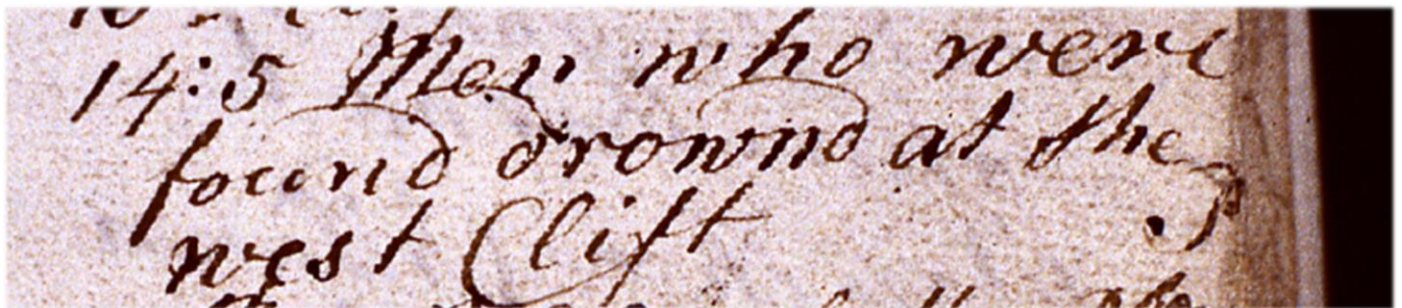 14: 5 Men who were
found drownd at the
west Clift